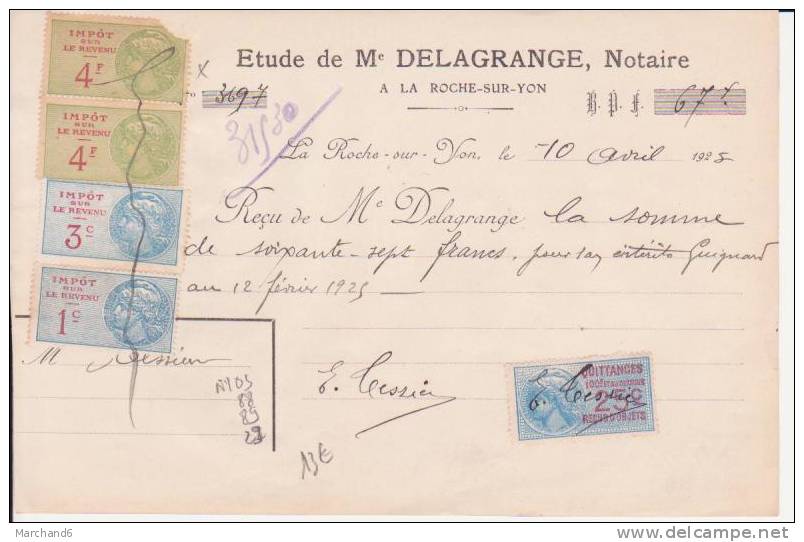 IMPÔT
SUR
LE REVENU
4F
IMPÔT
SUR
LE REVENU
4F
IMPÔT
SUR
LE REVENU
3c
IMPÔT
SUR
LE REVENU
1c
Etude de Me DELAGRANGE, Notaire
A LA ROCHE-SUR-YON
3697
B. P. F. 67f.
31530
La Roche-sur-Yon, le 10 avril 1925
Reçu de Me Delagrange la somme
de soixante-sept francs, pour ses intérêts Guignard
au 12 février 1925
M Tessier
N°105
88
89
29
E. Tessier
QUITTANCES
25c
REÇUS D'OBJETS
E. Tessier
13€
Marchand6
delcampe.net